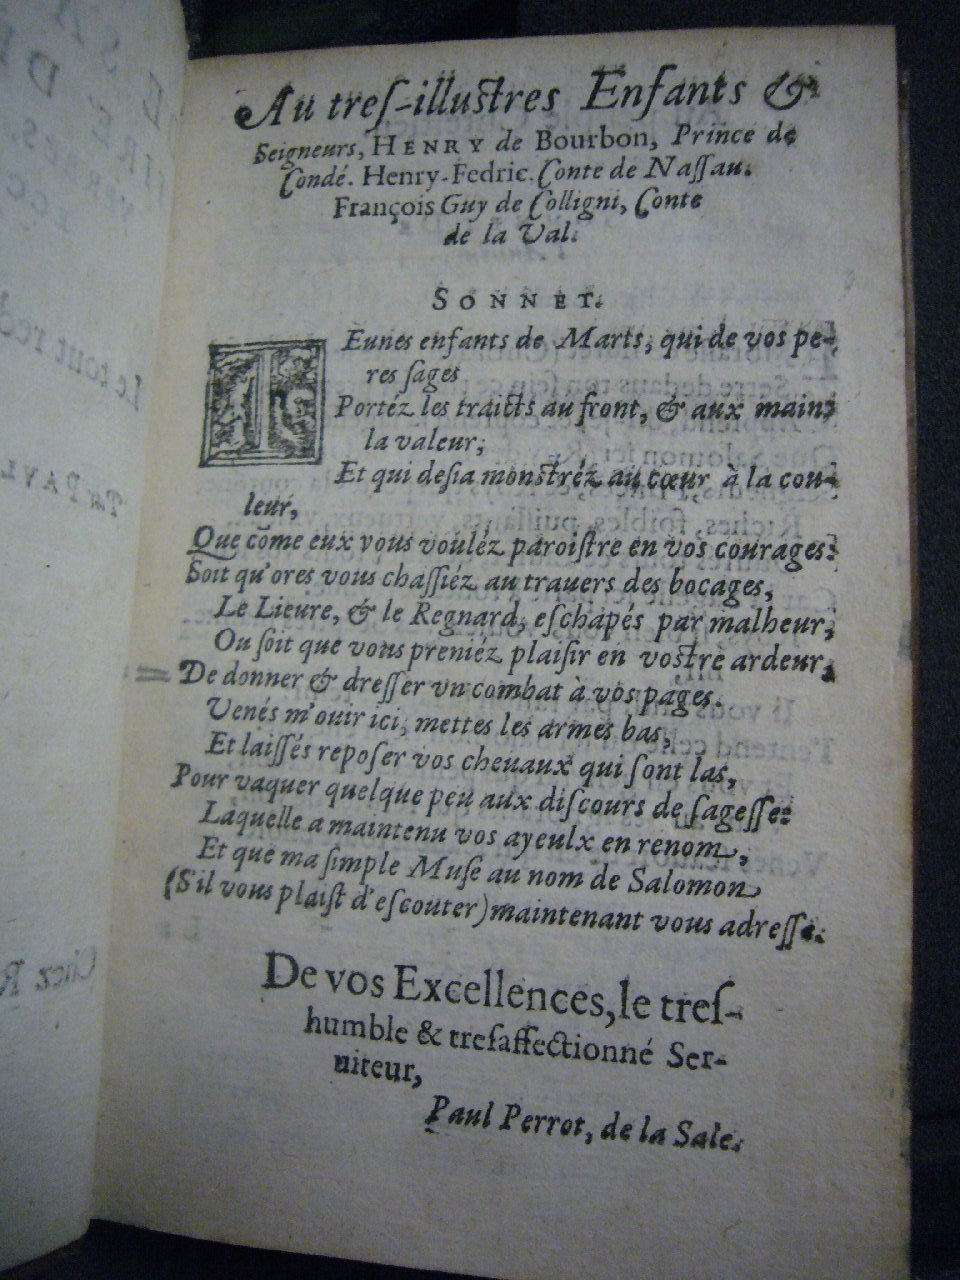 Au tres-illustres Enfants &
Seigneurs, HENRY de Bourbon, Prince de
Condé. Henry-Fedric. Conte de Nassau.
François Guy de Colligni, Conte
de la Val.
SONNET.
IEunes enfants de Marts, qui de vos pe-
res sages
Portéz les traicts au front, & aux mains
la valeur;
Et qui desia monstréz au cœur à la cou-
leur,
Que cõme eux vous vouléz paroistre en vos courages:
Soit qu'ores vous chassiéz au trauers des bocages,
Le Lieure, & le Regnard, eschapés par malheur,
Ou soit que vous preniéz plaisir en vostre ardeur,
De donner & dresser vn combat à vos pages.
Venés m'ouir ici, mettes les armes bas,
Et laissés reposer vos cheuaux qui sont las,
Pour vaquer quelque peu aux discours de sagesse:
Laquelle a maintenu vos ayeulx en renom,
Et que ma simple Muse au nom de Salomon
(S'il vous plaist d'escouter) maintenant vous adresse.
De vos Excellences, le tres-
humble & tresaffectionné Ser-
uiteur,
Paul Perrot, de la Sale.